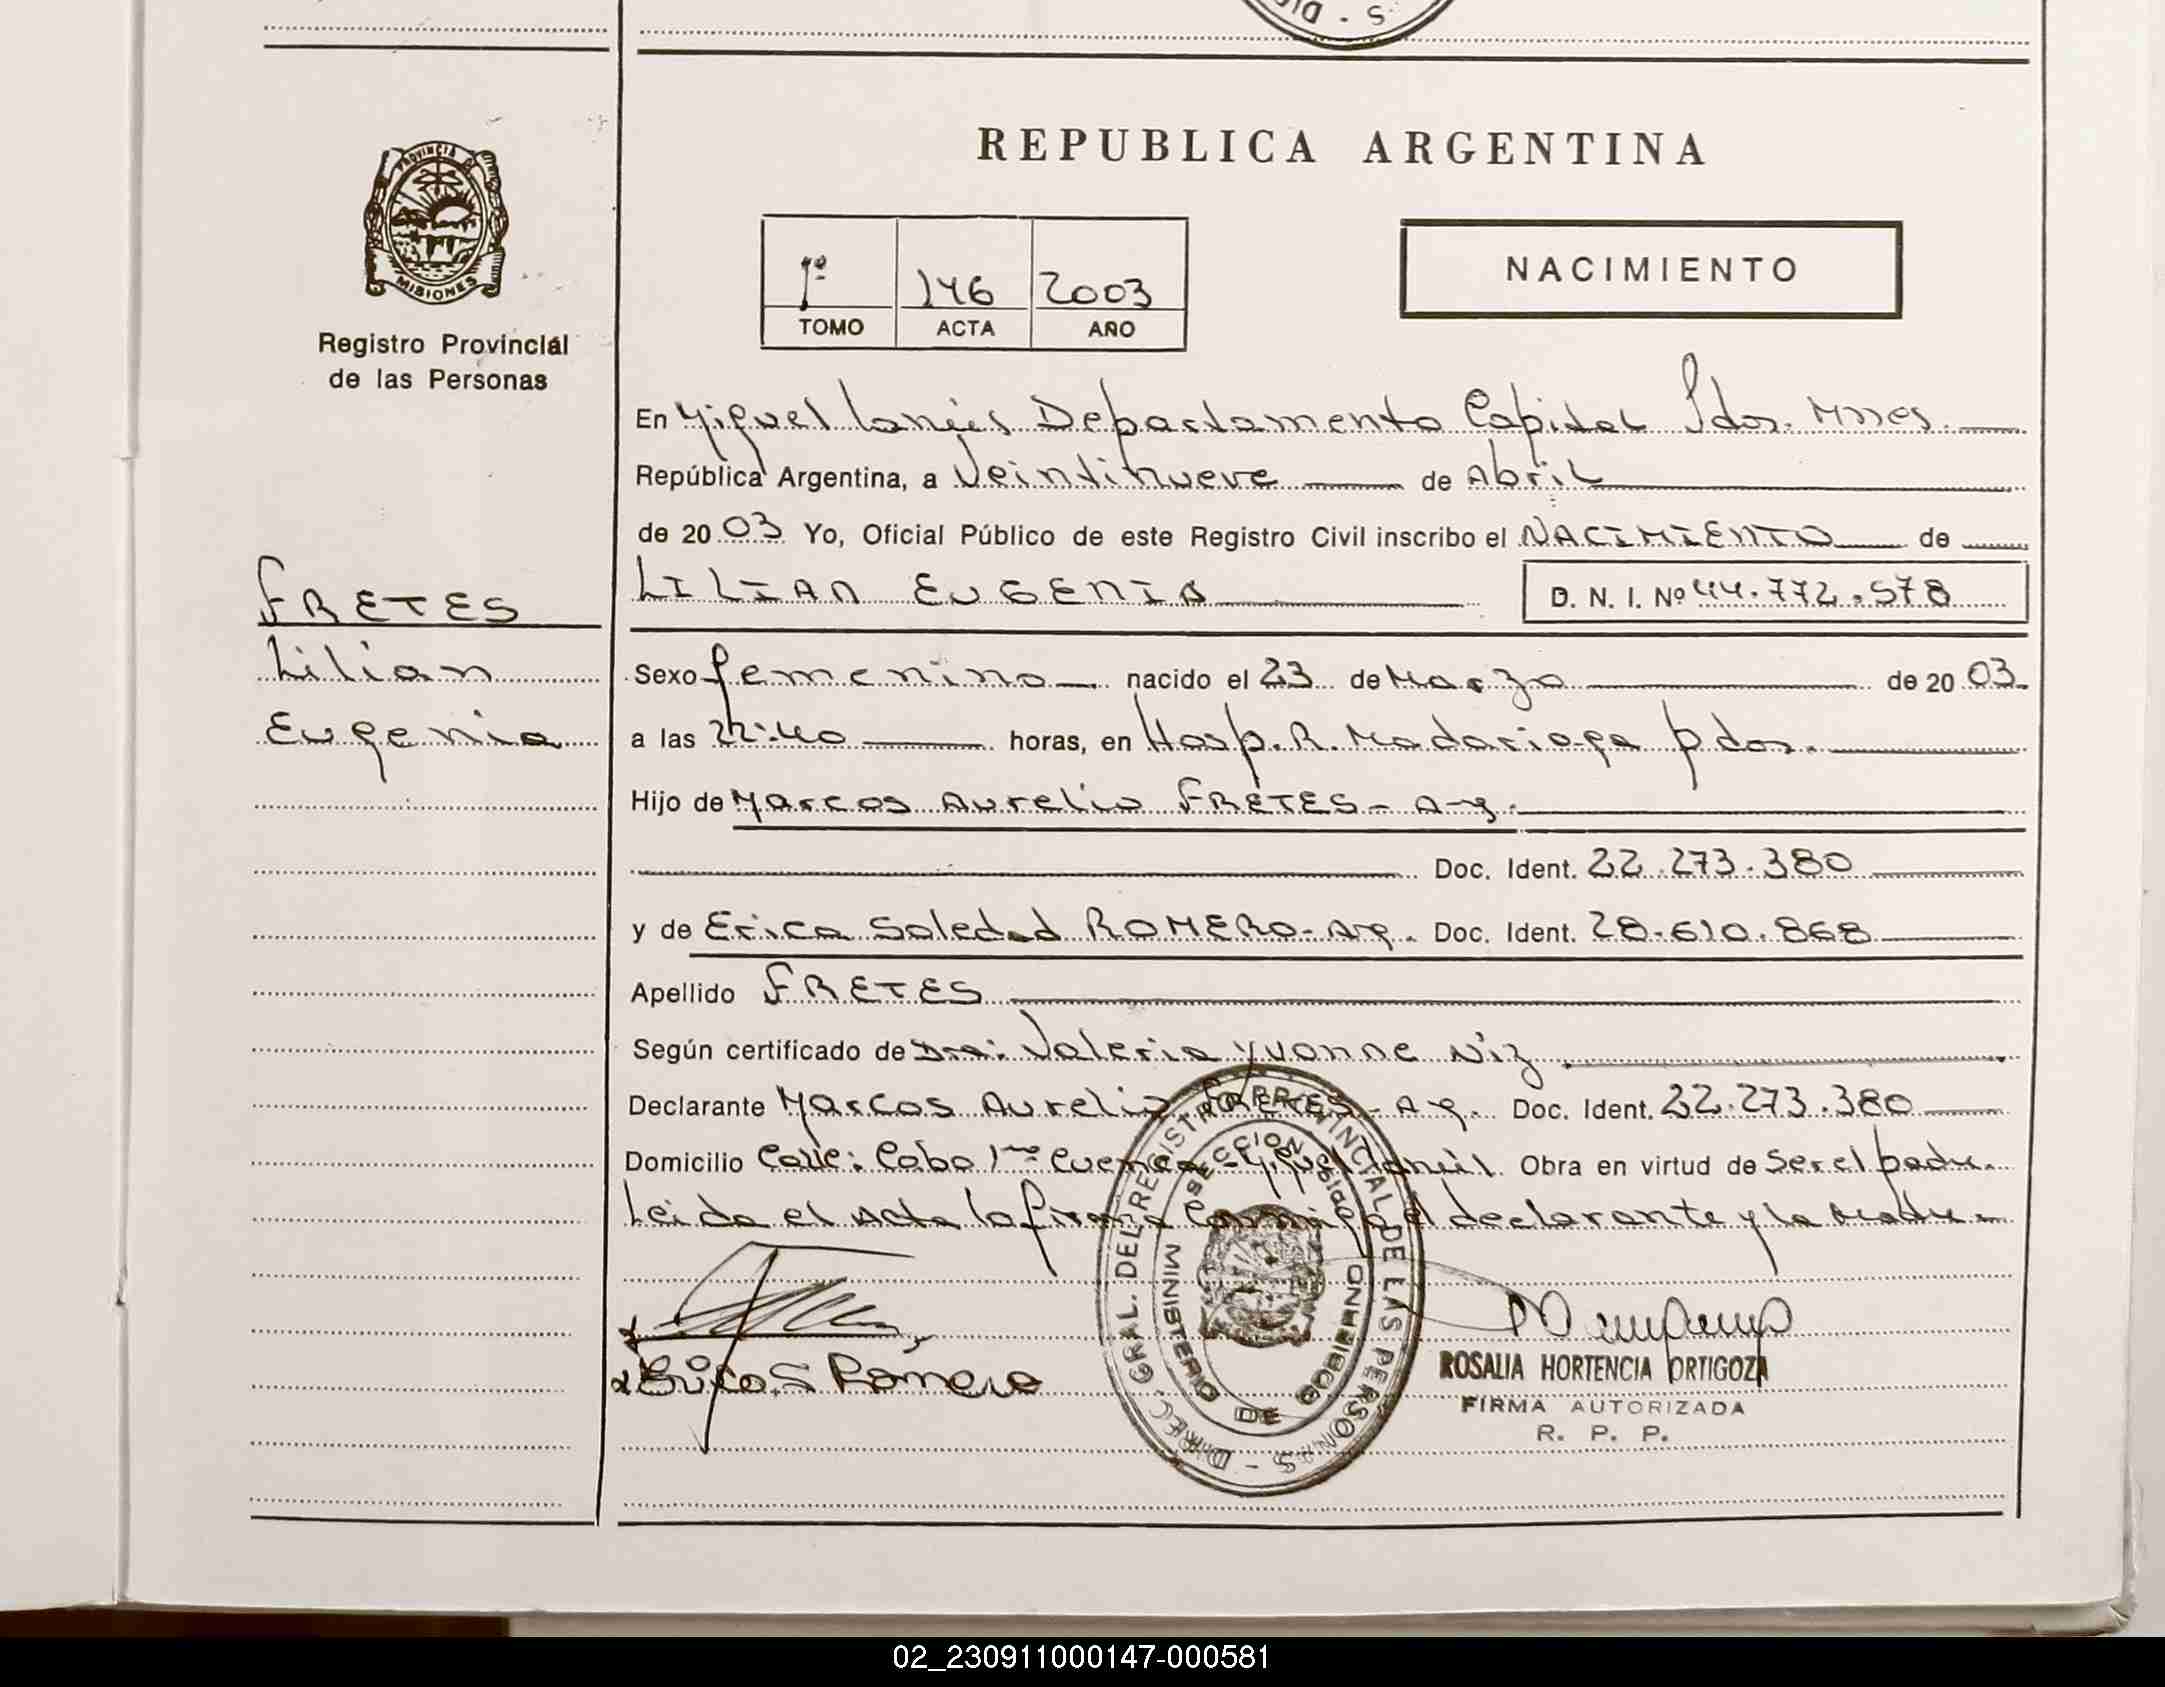 REPUBLICA ARGENTINA
PROVINCIA
MISIONES
Registro Provincial
de las Personas
1º 146 2003
TOMO ACTA AÑO
NACIMIENTO
En Miguel Lanús Departamento Capital Pdas. Mnes.
República Argentina, a Veintinueve de Abril
de 2003 Yo, Oficial Público de este Registro Civil inscribo el NACIMIENTO de
FRETES
Lilian
Eugenia
LILIAN EUGENIA D. N. I. Nº 44.772.578
Sexo femenino nacido el 23 de Marzo de 2003
a las 22:40 horas, en Hosp. R. Madariaga pdas.
Hijo de Marcos Aurelio FRETES - Arg.
Doc. Ident. 22.273.380
y de Erica Soledad ROMERO - Arg. Doc. Ident. 28.610.868
Apellido FRETES
Según certificado de Dra: Valeria Yvonne Niz
Declarante Marcos Aurelio FRETES - Arg. Doc. Ident. 22.273.380
Domicilio Calle: Cabo 1ro Cuenca - Miguel Lanús. Obra en virtud de ser el padre.
Leida el Acta la firma conmigo el declarante y la madre
Erica S Romero
DIREC. GRAL. DEL REGISTRO PROVINCIAL DE LAS PERSONAS
MINISTERIO DE GOBIERNO
ROSALIA HORTENCIA ORTIGOZA
FIRMA AUTORIZADA
R. P. P.
02_230911000147-000581